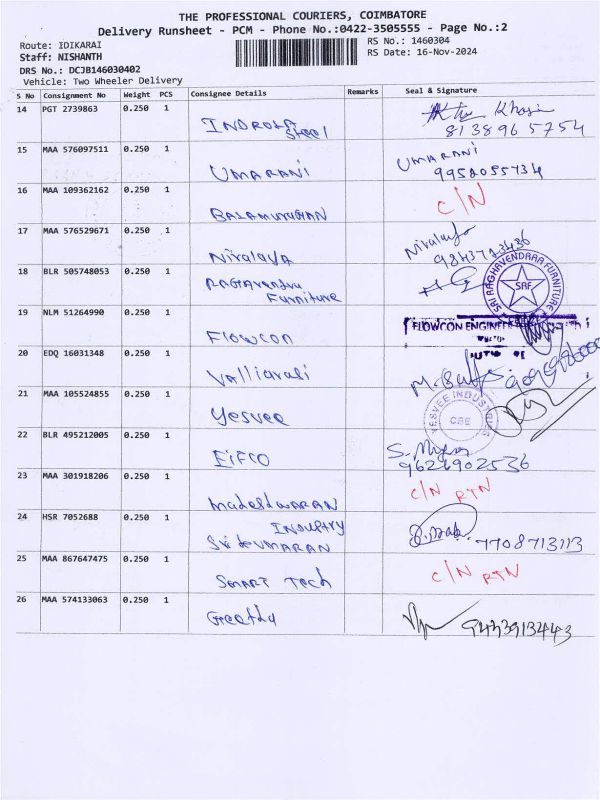 THE PROFESSIONAL COURIERS, COIMBATORE
Delivery Runsheet - PCM - Phone No.:0422-3505555 - Page No.:2
Route: IDIKARAI
RS No.: 1460304
Staff: NISHANTH
RS Date: 16-Nov-2024
DRS No.: DCJB146030402
Vehicle: Two Wheeler Delivery
S No Consignment No Weight PCS Consignee Details Remarks Seal & Signature
14 PGT 2739863 0.250 1
Steel
8138965754
15 MAA 576097511 0.250 1
UMARANI UMARANI
9952055734
16 MAA 109362162 0.250 1
BALAMURUGAN C/N
17 MAA 576529671 0.250 1
Niralaya Niralaya
18 BLR 505748053 0.250 1
Raghavendra
Furniture
SRI RAGHAVENDRAA FURNITURE
SRF
19 NLM 51264990 0.250 1
Flowcon
FLOWCON ENGINEER
20 EDQ 16031348 0.250 1
21 MAA 105524855 0.250 1
Yesvee
YESVEE INDUSTRIES
CBE
22 BLR 495212005 0.250 1
EIFCO
9626902536
23 MAA 301918206 0.250 1
Madeshwaran C/N RTN
24 HSR 7052688 0.250 1
Industry
7708713113
25 MAA 867647475 0.250 1
Smart Tech C/N RTN
26 MAA 574133063 0.250 1
Geetha